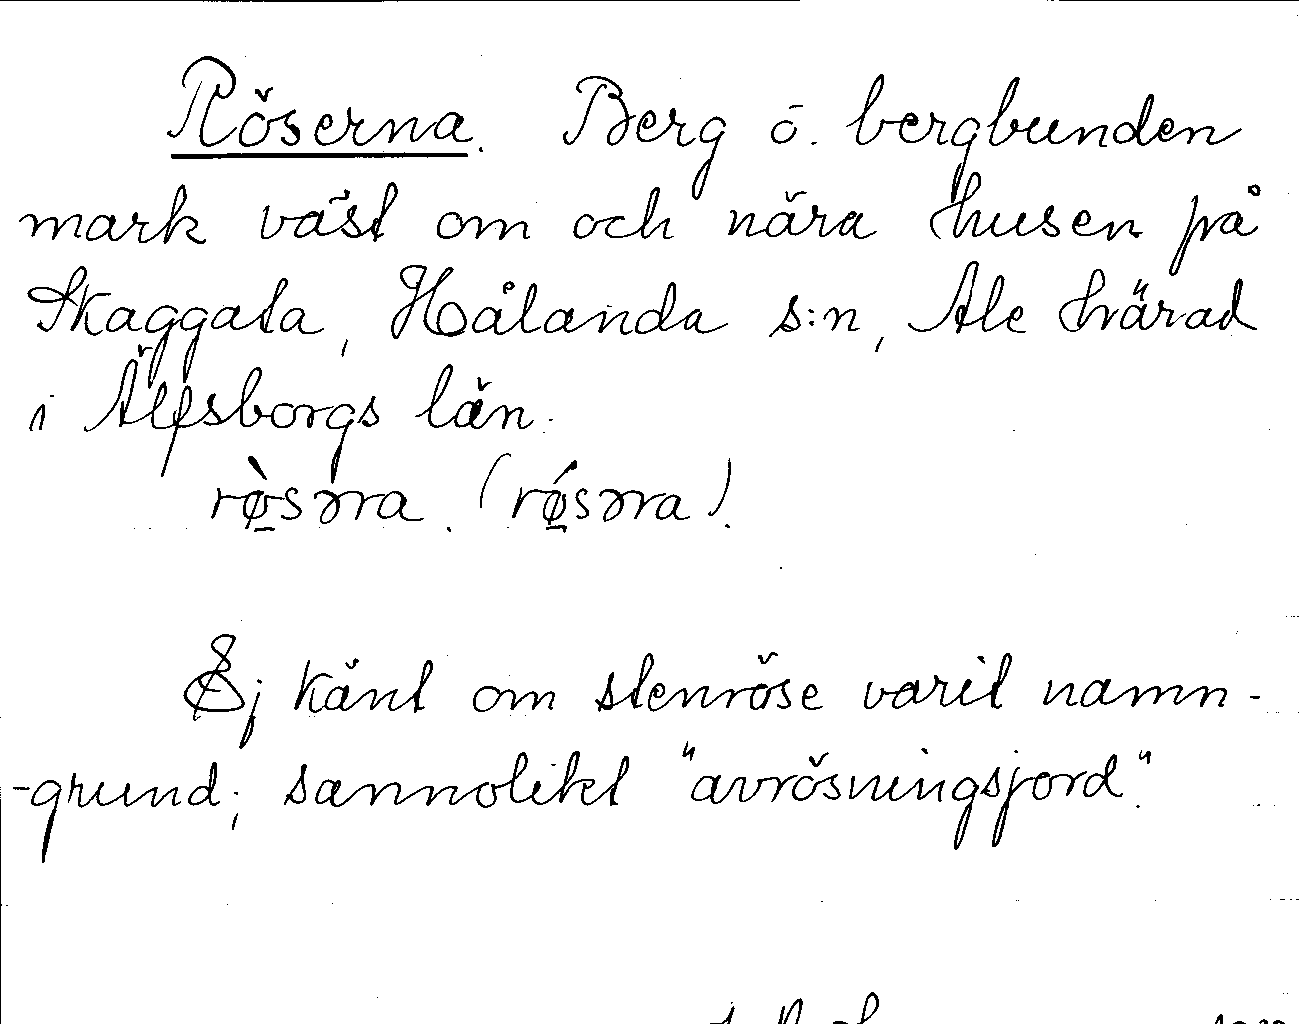 Röserna. Berg o. bergbunden
mark väst om och nära husen på
Skaggata, Hålanda s:n, Ale härad
i Älfsborgs län.
rø̀səra. (rǿsəra).
Ej känt om stenröse varit namn-
-grund; sannolikt "avrösningsjord".